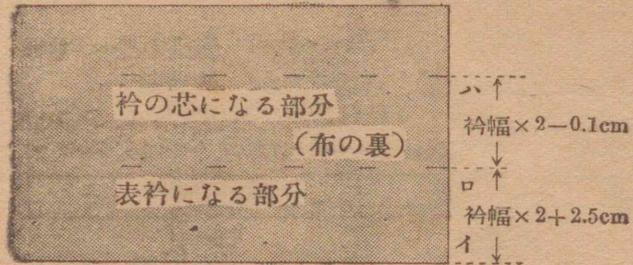 衿の芯になる部分
(布の裏)
表衿になる部分
ハ
衿幅×2−0.1cm
ロ
衿幅×2+2.5cm
イ